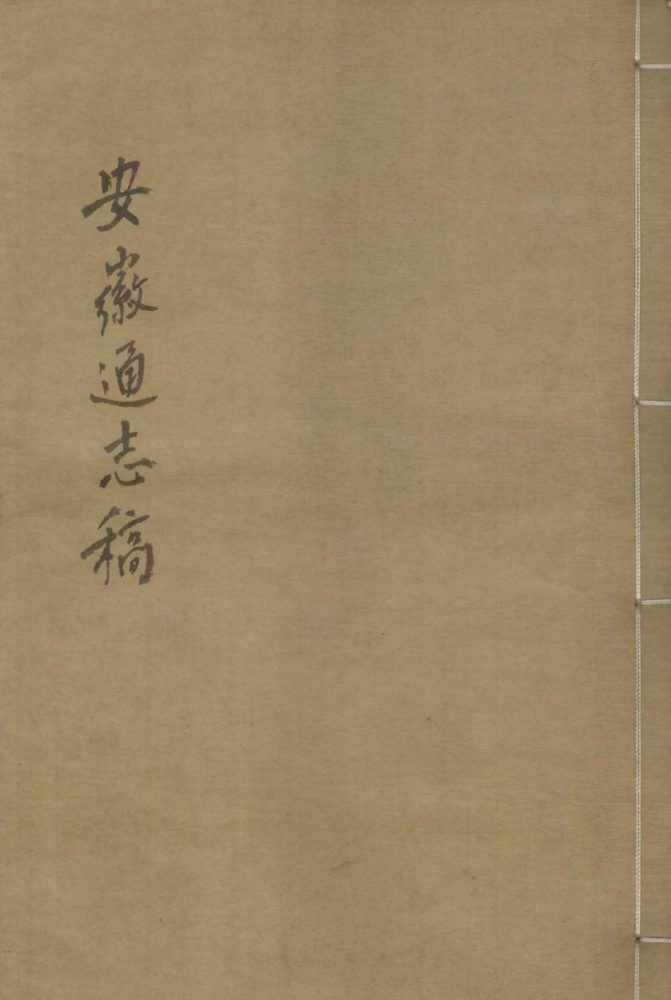 安徽通志稿